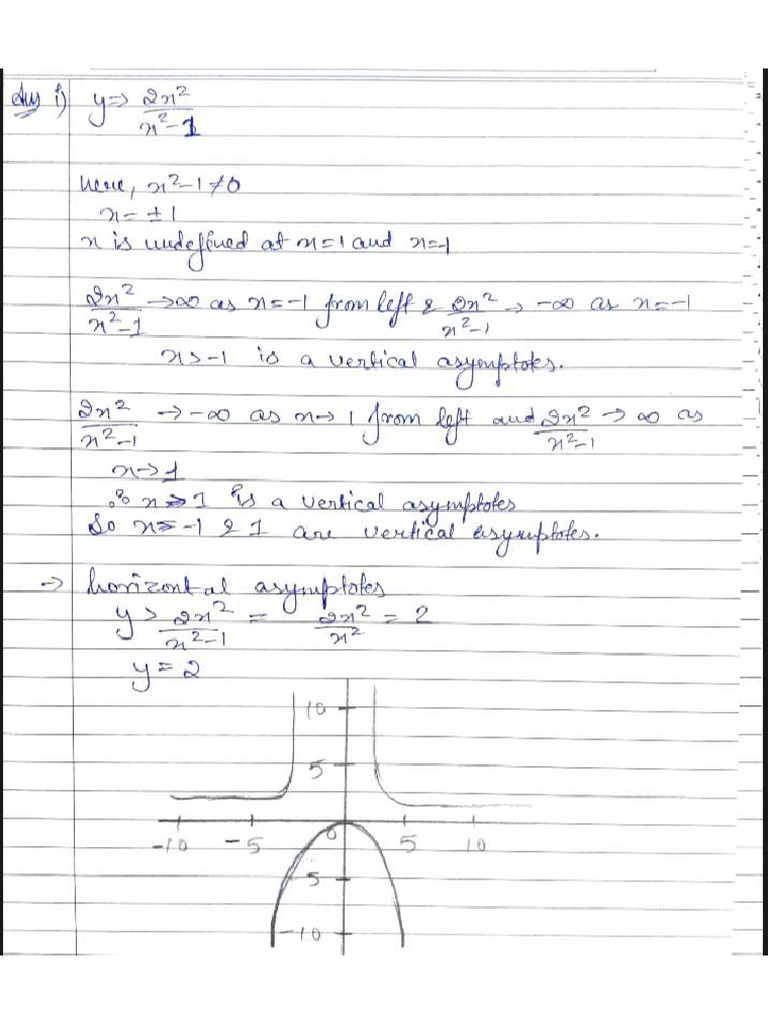 Ans i) y => 2x²/x²-1
here, x²-1≠0
x = ±1
x is undefined at x=1 and x=-1
2x²/x²-1 → ∞ as x=-1 from left & 2x²/x²-1 → -∞ as x=-1
x > -1 is a vertical asymptotes.
2x²/x²-1 → -∞ as x→1 from left and 2x²/x²-1 → ∞ as
x→1
∴ x → 1 is a vertical asymptotes
So x = -1 & 1 are vertical asymptotes.
→ horizontal asymptotes
y > 2x²/x²-1 = 2x²/x² = 2
y = 2
10
5
-10 -5 0 5 10
-5
-10